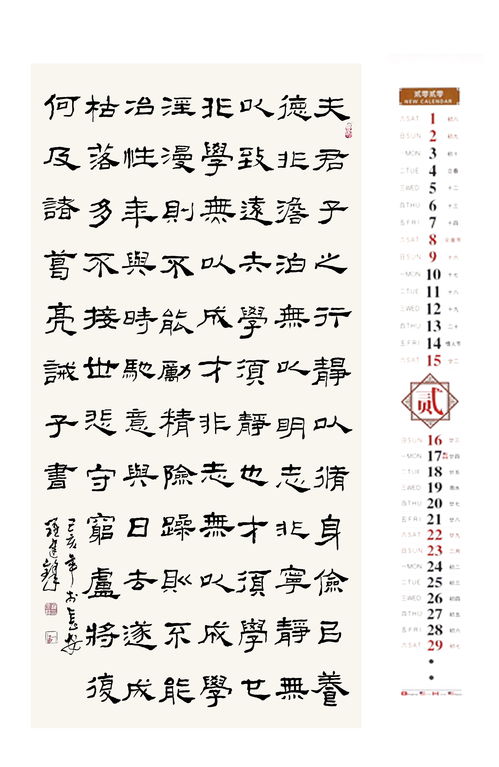 夫君子之行靜以脩身儉己養
德非澹泊無以明志非寧靜無
以致遠夫學須靜也才須學也
非學無以成才非志無以成學
淫漫則不能勵精險躁則不能
冶性年與時馳意與日去遂成
枯落多不接世悲守窮廬將復
何及諸葛亮誡子書
己亥年於長安
貳零貳零
NEW CALENDAR
六 SAT 1 初八
日 SUN 2 初九
一 MON 3 初十
二 TUE 4 立春
三 WED 5 十二
四 THU 6 十三
五 FRI 7 十四
六 SAT 8 元宵节
日 SUN 9 十六
一 MON 10 十七
二 TUE 11 十八
三 WED 12 十九
四 THU 13 二十
五 FRI 14 情人节
六 SAT 15 廿二
贰
日 SUN 16 廿三
一 MON 17 廿四
二 TUE 18 廿五
三 WED 19 雨水
四 THU 20 廿七
五 FRI 21 廿八
六 SAT 22 廿九
日 SUN 23 二月
一 MON 24 初二
二 TUE 25 初三
三 WED 26 初四
四 THU 27 初五
五 FRI 28 初六
六 SAT 29 初七